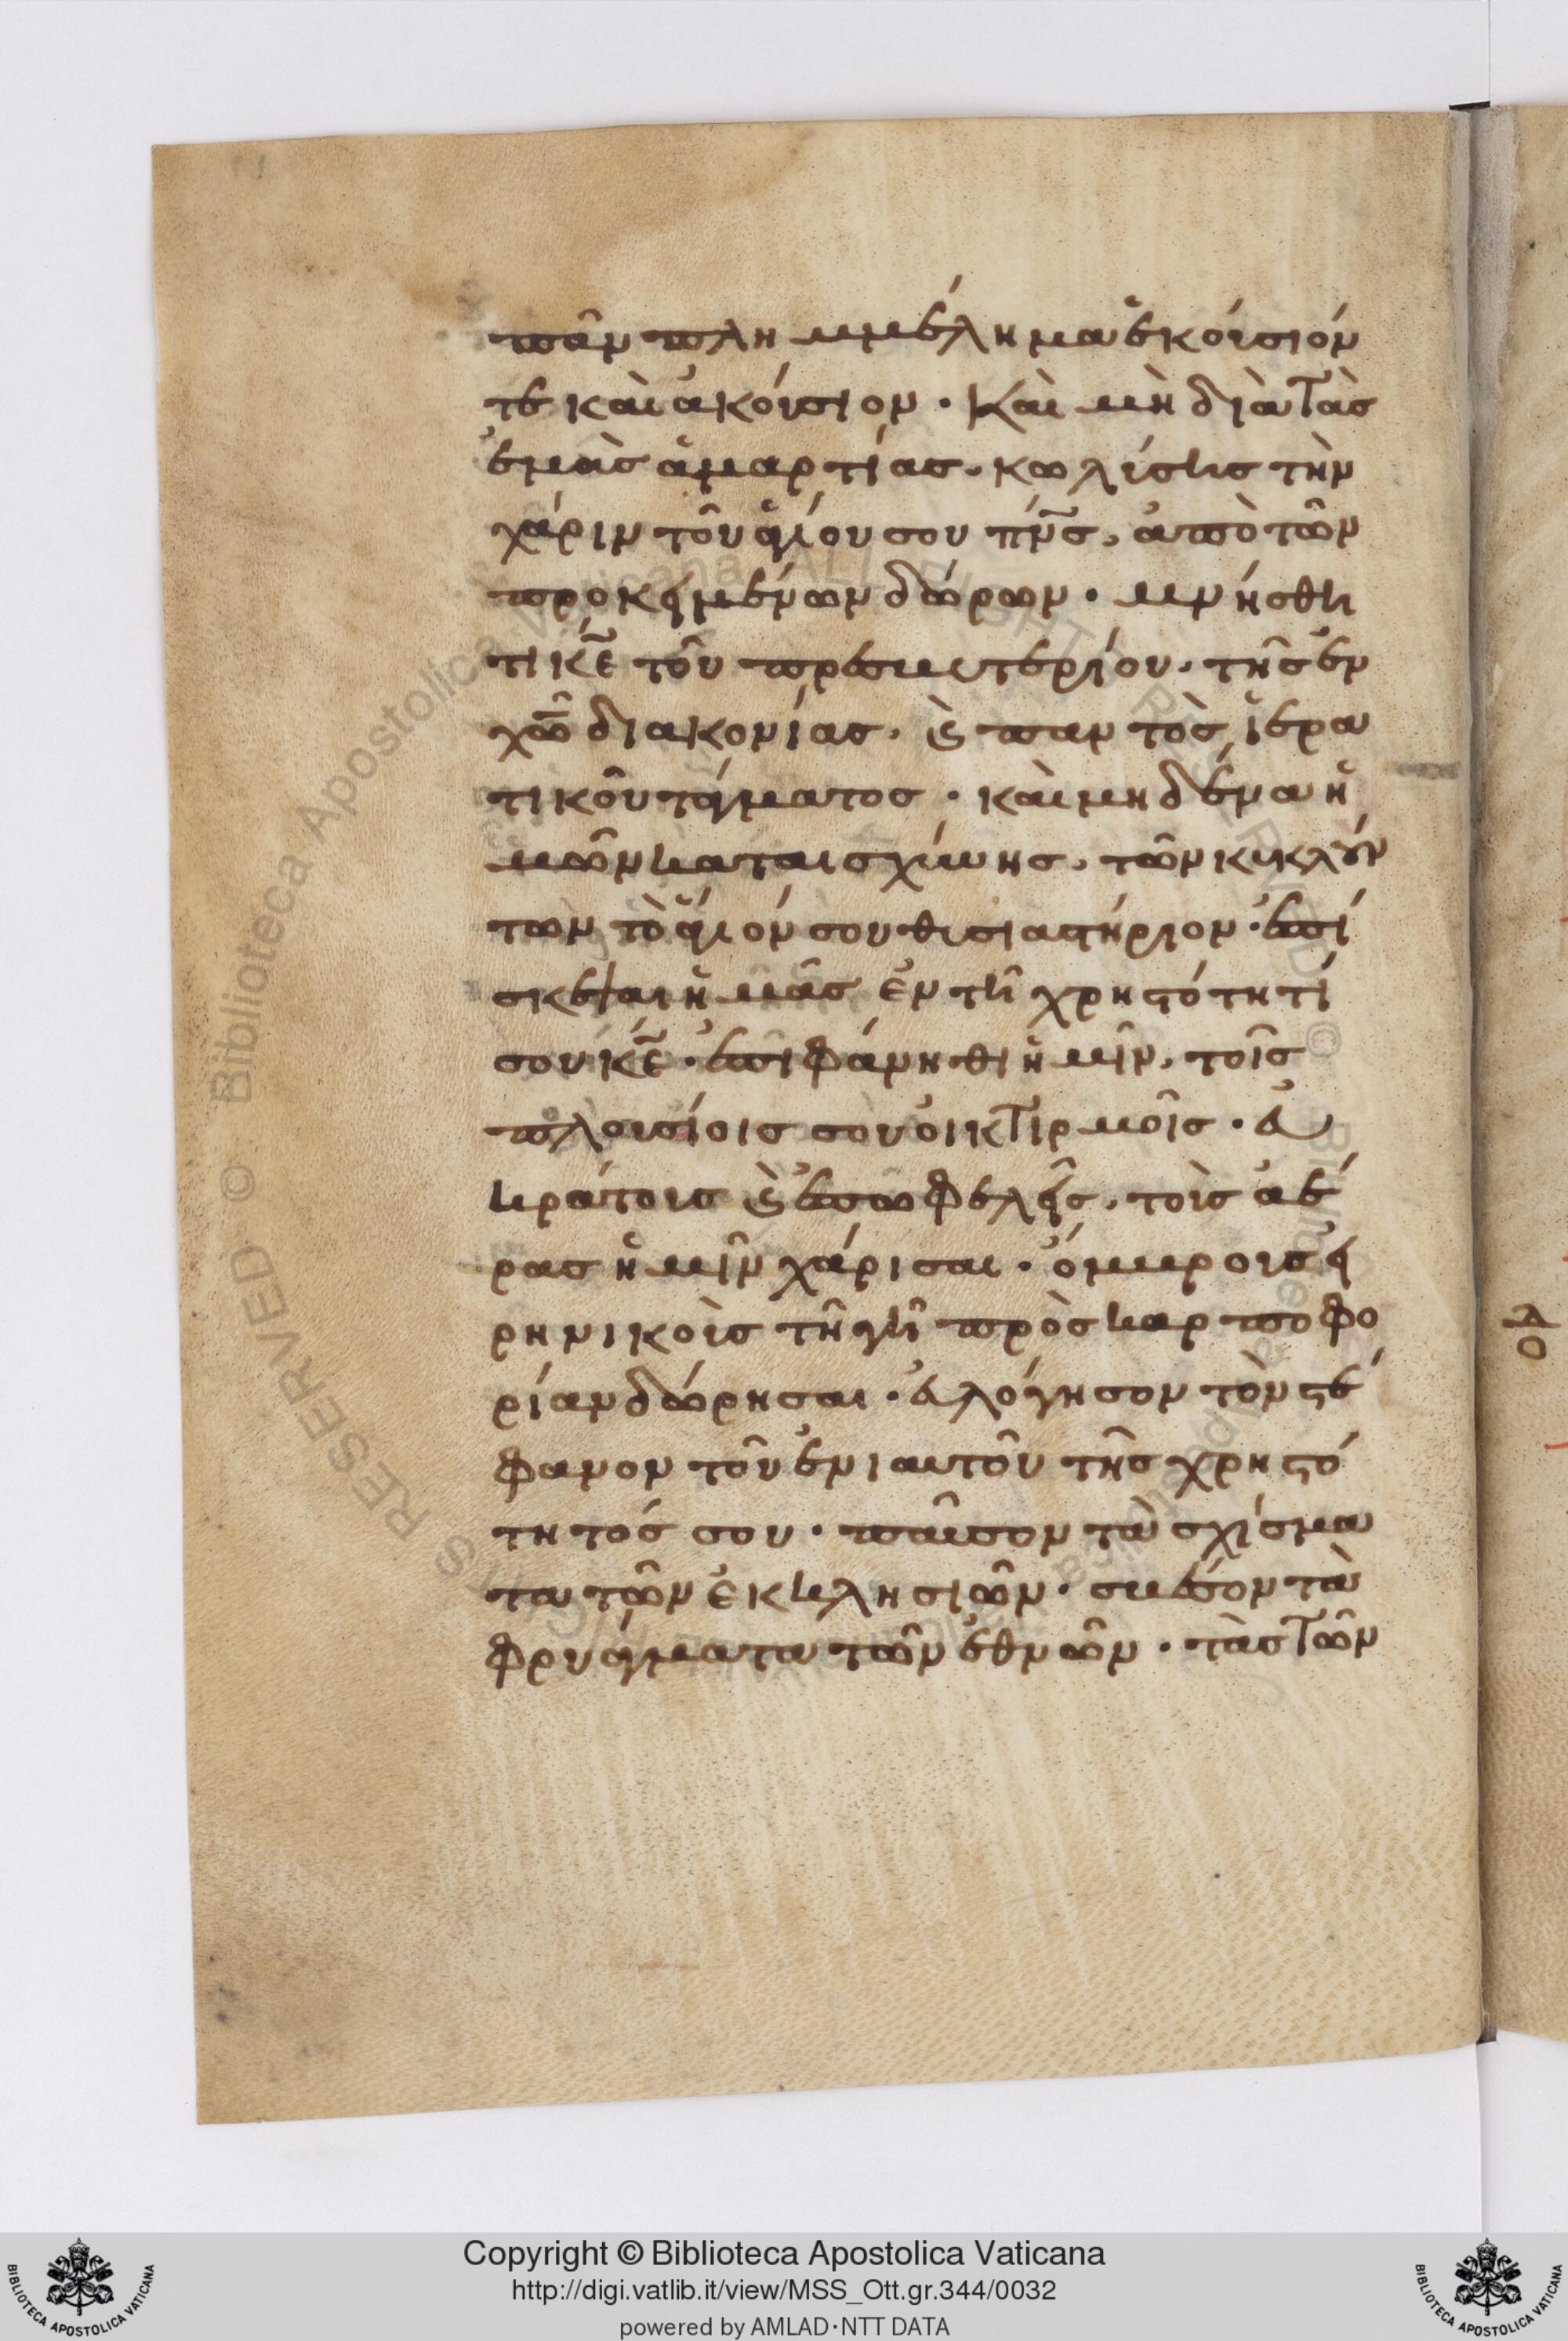 πᾶν πλημμέλημα ἑκούσιόν
τε καὶ ἀκούσιον · Καὶ μὴ διὰ τὰς
ἐμὰς ἁμαρτίας, κωλύσης τὴν
χάριν τοῦ ἁγίου σου πν̅ς, ἀπὸ τῶν
προκειμένων δώρων · μνήσθη
τι κ̅ε τοῦ πρεσβυτερίου, τῆς ἐν
χ̅ω διακονίας, ϗ παντὸς ἱερα
τικοῦ τάγματος · καὶ μηδένα ἡ
μῶν καταισχύνης, τῶν κυκλούν
των τὸ ἅγιόν σου θυσιαστήριον · ἐπί
σκεψαι ἡμᾶς ἐν τῆ χρηστότητί
σου κ̅ε · ἐπιφάνηθι ἡμῖν, τοῖς
πλουσίοις σου οἰκτιρμοῖς · εὐ
κράτους ϗ ἐπωφελεῖς, τοὺς ἀέ
ρας ἡμῖν χάρισαι · ὄμβρους εἰ
ρηνικοὺς τῆ γῆ πρὸς καρποφο
ρίαν δώρησαι · εὐλόγησον τὸν στέ
φανον τοῦ ἐνιαυτοῦ τῆς χρηστό
τητός σου · παῦσον τὰ σχίσμα
τα τῶν ἐκκλησιῶν · σβέσον τὰ
φρυάγματα τῶν ἐθνῶν · τὰς τῶν
Copyright © Biblioteca Apostolica Vaticana
http://digi.vatlib.it/view/MSS_Ott.gr.344/0032
powered by AMLAD·NTT DATA